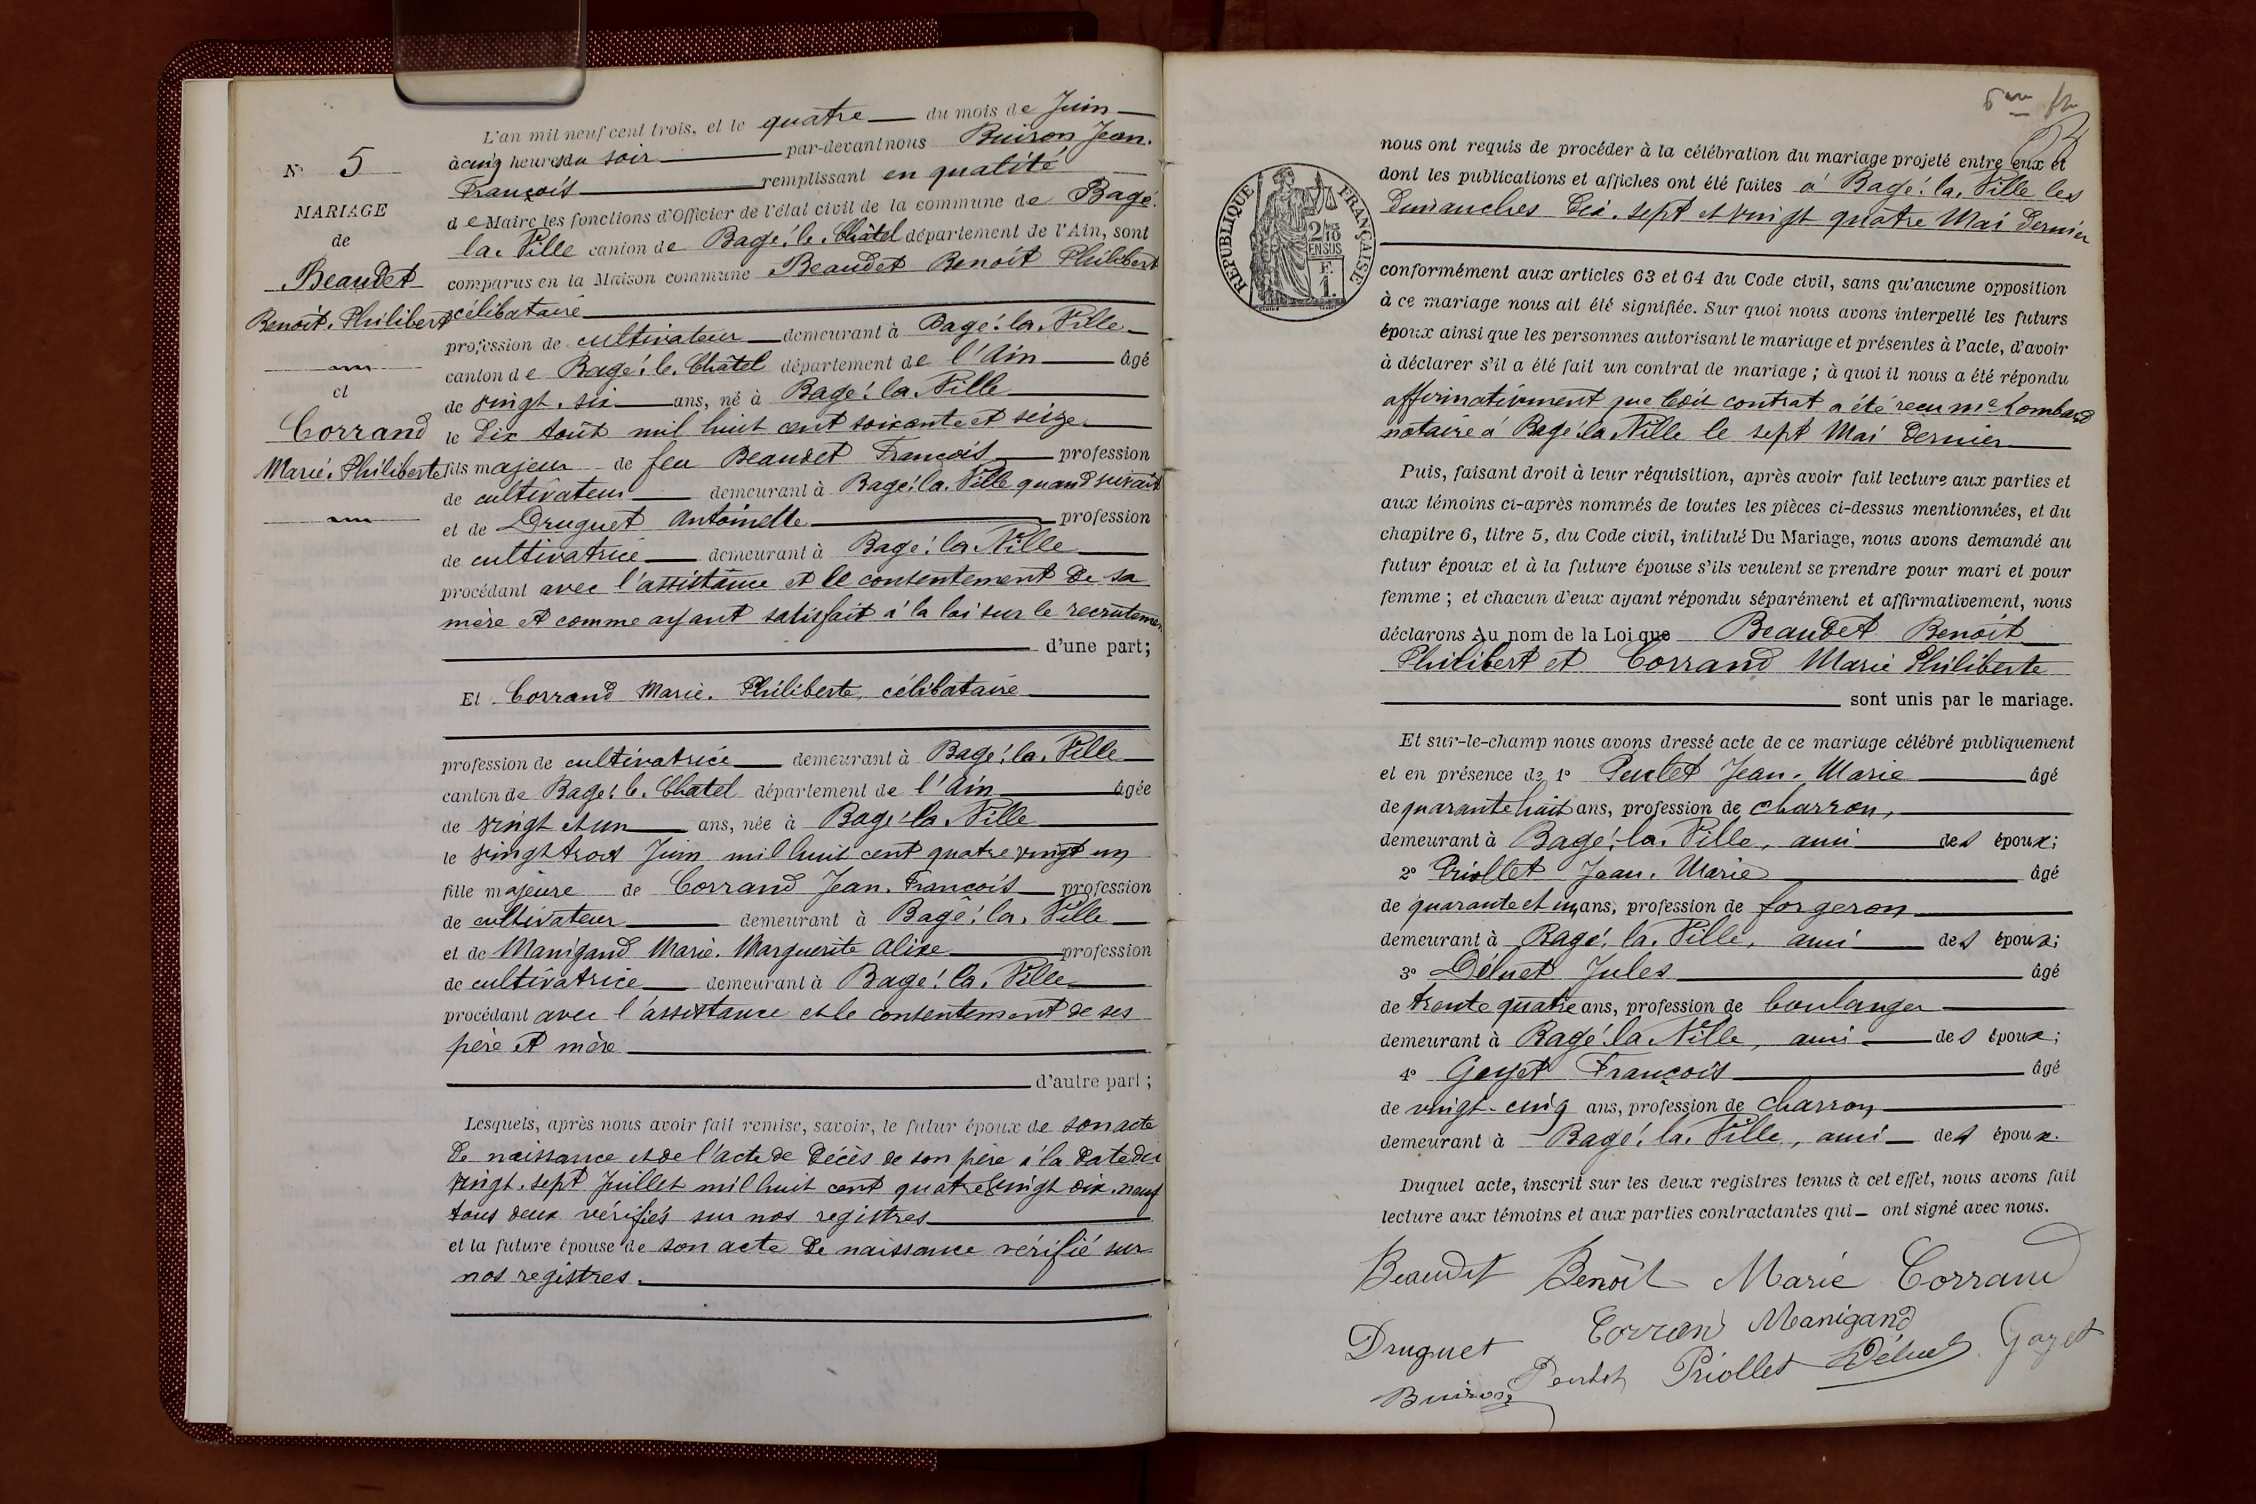 L'an mil neuf cent trois, et le quatre du mois de Juin
à cinq heures du soir par-devant nous Buiron Jean.
François remplissant en qualité
de Maire les fonctions d'Officier de l'état civil de la commune de Bagé.
la. Ville canton de Bagé. le. Châtel département de l'Ain, sont
comparus en la Maison commune Beaudet Benoît Philibert
célibataire
profession de cultivateur demeurant à Bagé. la. Ville
canton de Bagé. le. Châtel département de l'Ain âgé
de vingt. six ans, né à Bagé. la Ville
le dix Août mil huit cent soixante et seize
fils majeur de feu Beaudet François profession
de cultivateur demeurant à Bagé. la. Ville quand vivait
et de Druguet Antoinette profession
de cultivatrice demeurant à Bagé. la Ville
procédant avec l'assistance et le consentement de sa
mère et comme ayant satisfait à la loi sur le recrutement
d'une part;
Et Corrand Marie. Philiberte, célibataire
profession de cultivatrice demeurant à Bagé. la. Ville
canton de Bagé. le. Chatel département de l'Ain âgée
de vingt et un ans, née à Bagé. la. Ville
le vingt trois Juin mil huit cent quatre vingt un
fille majeure de Corrand Jean. François profession
de cultivateur demeurant à Bagé. la. Ville
et de Manigand Marie. Marguerite Alixe profession
de cultivatrice demeurant à Bagé. la. Ville
procédant avec l'assistance et le consentement de ses
père et mère
d'autre part;
Lesquels, après nous avoir fait remise, savoir, le futur époux de son acte
de naissance et de l'acte de décès de son père à la date du
vingt. sept Juillet mil huit cent quatre vingt dix. neuf
tous deux vérifiés sur nos registres
et la future épouse de son acte de naissance vérifié sur
nos registres.
N° 5
MARIAGE
de
Beaudet
Benoît. Philibert
et
Corrand
Marie. Philiberte
nous ont requis de procéder à la célébration du mariage projeté entre eux et
dont les publications et affiches ont été faites à Bagé. la. Ville les
dimanches dix. sept et vingt quatre Mai dernier
conformément aux articles 63 et 64 du Code civil, sans qu'aucune opposition
à ce mariage nous ait été signifiée. Sur quoi nous avons interpellé les futurs
époux ainsi que les personnes autorisant le mariage et présentes à l'acte, d'avoir
à déclarer s'il a été fait un contrat de mariage; à quoi il nous a été répondu
affirmativement que contrat a été reçu Me Lombard
notaire à Bagé. la Ville le sept Mai dernier
Puis, faisant droit à leur réquisition, après avoir fait lecture aux parties et
aux témoins ci-après nommés de toutes les pièces ci-dessus mentionnées, et du
chapitre 6, titre 5, du Code civil, intitulé Du Mariage, nous avons demandé au
futur époux et à la future épouse s'ils veulent se prendre pour mari et pour
femme; et chacun d'eux ayant répondu séparément et affirmativement, nous
déclarons Au nom de la Loi que Beaudet Benoît
Philibert et Corrand Marie Philiberte
sont unis par le mariage.
Et sur-le-champ nous avons dressé acte de ce mariage célébré publiquement
et en présence de 1° Pentet Jean. Marie âgé
de quarante huit ans, profession de charron,
demeurant à Bagé. la. Ville, ami des époux;
2° Priollet Jean. Marie âgé
de quarante et un ans, profession de forgeron
demeurant à Bagé. la. Ville, ami des époux;
3° Déluet Jules âgé
de trente quatre ans, profession de boulanger
demeurant à Bagé. la Ville, ami des époux;
4° Goyet François âgé
de vingt-cinq ans, profession de charron
demeurant à Bagé. la. Ville, ami des époux.
Duquel acte, inscrit sur les deux registres tenus à cet effet, nous avons fait
lecture aux témoins et aux parties contractantes qui ont signé avec nous.
Beaudet Benôit Marie Corrand
Corrand Manigand
Druguet Pentet Priollet Déluet Goyet
Buiron
RÉPUBLIQUE FRANÇAISE
2 10
EN SUS
F.
1.